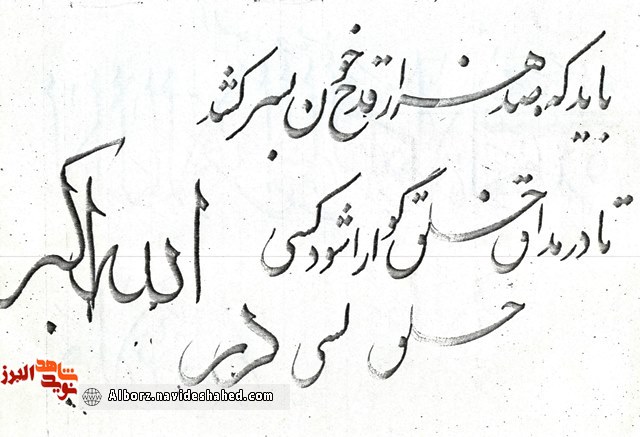 باید که صد هزار قدح خون بسر کشد
تا در مذاق خلق گوارا شود کسی
الله اکبر
خلق کسی در
نوید شاهد البرز
Alborz.navideshahed.com